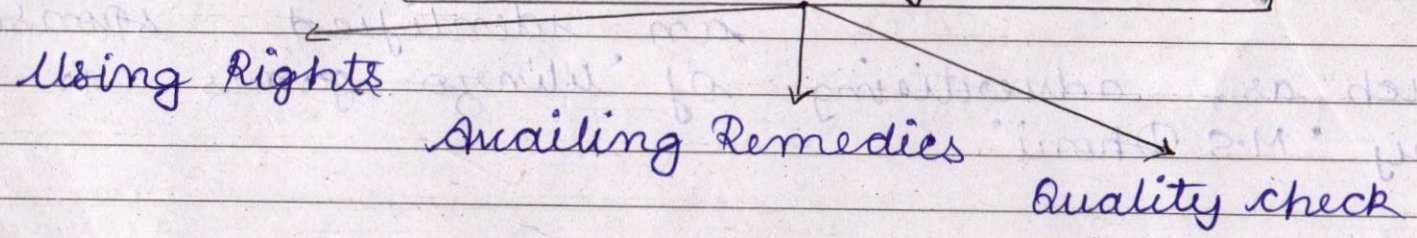 Using Rights
Availing Remedies
Quality check